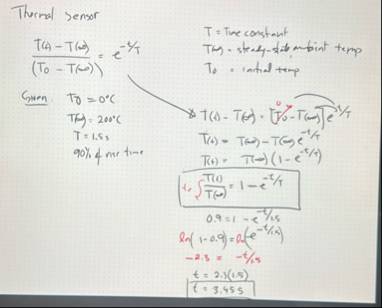 Thermal Sensor
T(t) - T(∞) / (T₀ - T(∞)) = e^-t/τ
τ = Time constant
T(∞) = steady-state ambient temp
T₀ = initial temp
Given: T₀ = 0°C
T(∞) = 200°C
τ = 1.5 s
90% of rise time
T(t) - T(∞) = [T₀ - T(∞)] e^-t/τ
0
T(t) = T(∞) - T(∞) e^-t/τ
T(t) = T(∞) (1 - e^-t/τ)
T(t) / T(∞) = 1 - e^-t/τ
0.9 = 1 - e^-t/1.5
ln(1 - 0.9) = ln(e^-t/1.5)
-2.3 = -t/1.5
t = 2.3(1.5)
t = 3.45 s